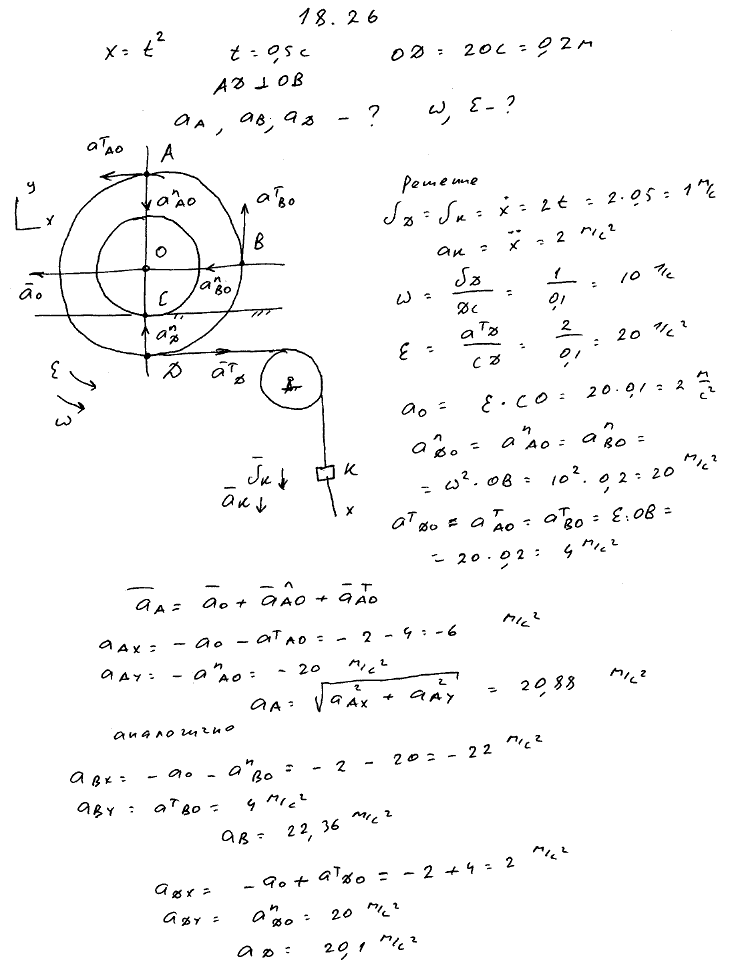 18.26
x = t² t = 0,5 с OD = 20 с = 0,2 м
AD ⊥ OB
a_A, a_B, a_D – ? ω, ε – ?
a^τ_AO A
y
x
a^n_AO
a^τ_BO
O
B
a^n_BO
ā_O
C
a^n_D
D
ā^τ_D
ε
ω
ῡ_K
ā_K
K
x
Решение
υ_D = υ_K = ẋ = 2t = 2·0,5 = 1 м/с
a_K = ẍ = 2 м/с²
ω = υ_D/DC = 1/0,1 = 10 1/с
ε = a^τ_D/CD = 2/0,1 = 20 1/с²
a_O = ε·CO = 20·0,1 = 2 м/с²
a^n_DO = a^n_AO = a^n_BO =
= ω²·OB = 10²·0,2 = 20 м/с²
a^τ_DO = a^τ_AO = a^τ_BO = ε·OB =
= 20·0,2 = 4 м/с²
ā_A = ā_O + ā^n_AO + ā^τ_AO
a_AX = – a_O – a^τ_AO = – 2 – 4 = –6 м/с²
a_AY = – a^n_AO = – 20 м/с²
a_A = √(a²_AX + a²_AY) = 20,88 м/с²
аналогично
a_BX = – a_O – a^n_BO = – 2 – 20 = – 22 м/с²
a_BY = a^τ_BO = 4 м/с²
a_B = 22,36 м/с²
a_DX = – a_O + a^τ_DO = – 2 + 4 = 2 м/с²
a_DY = a^n_DO = 20 м/с²
a_D = 20,1 м/с²